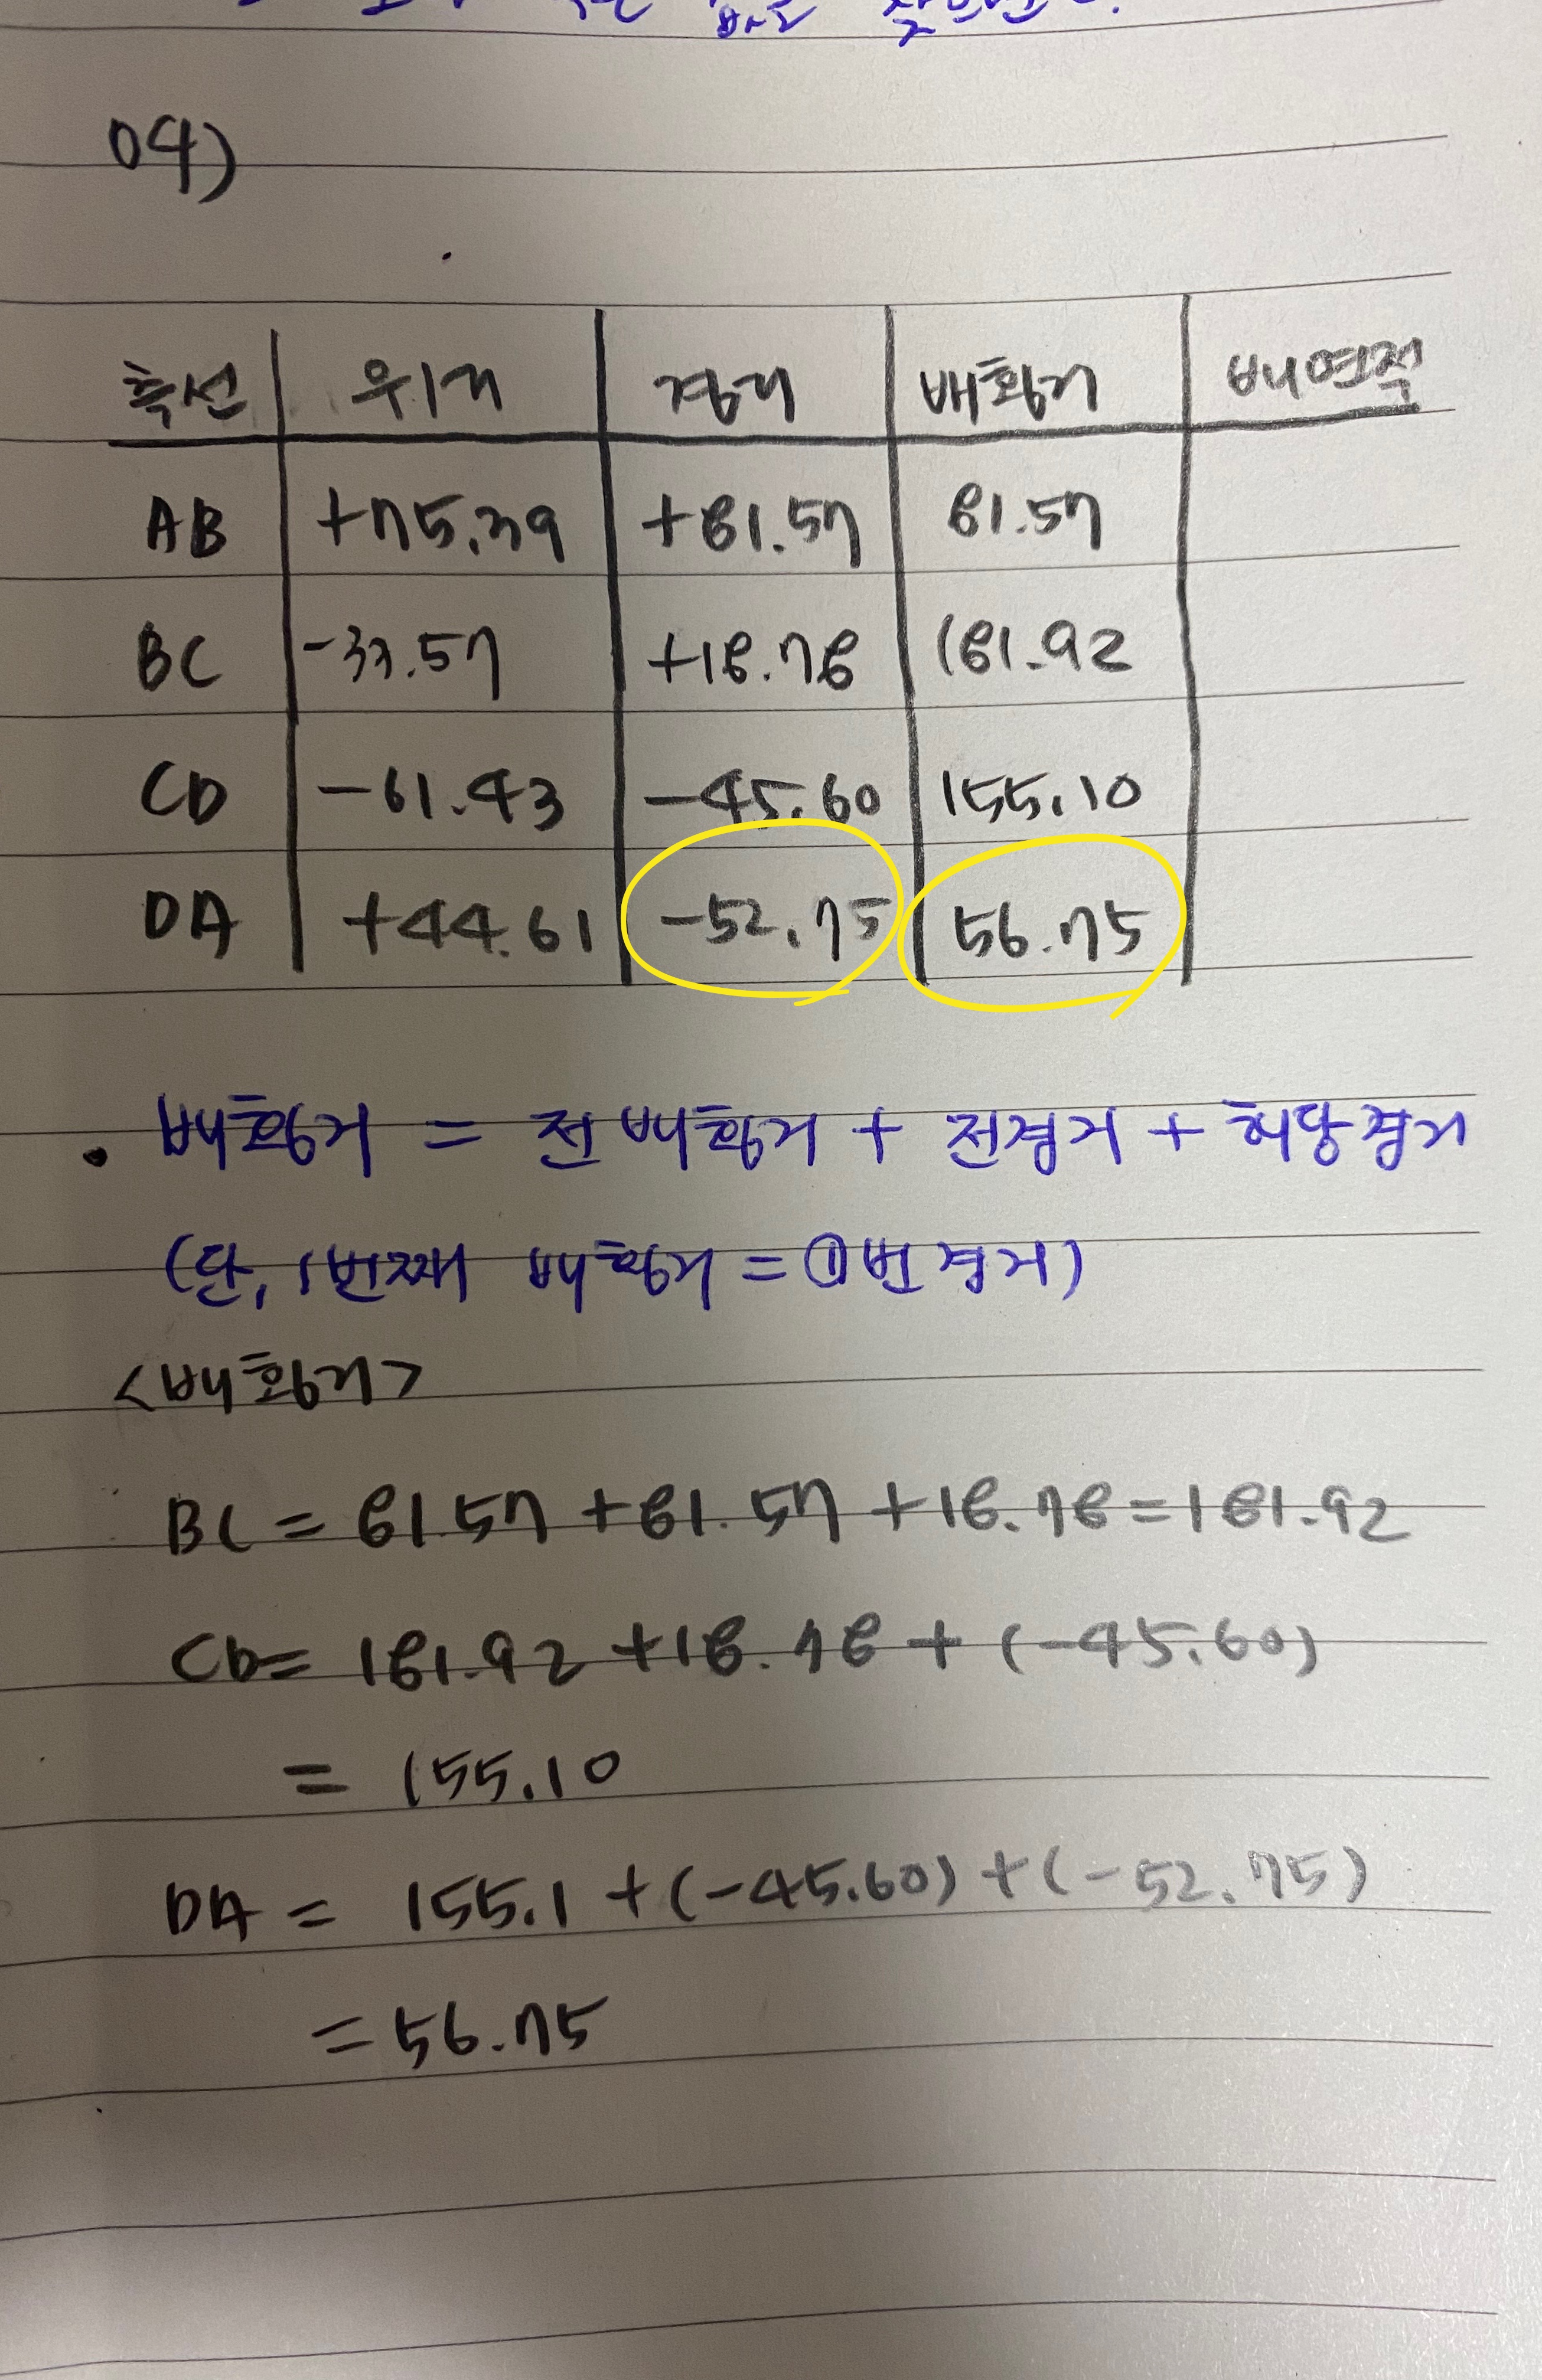 04)
측선 위거 경거 배횡거 배면적
AB +75.39 +81.57 81.57
BC -33.57 +18.78 181.92
CD -61.43 -45.60 155.10
DA +44.61 -52.75 56.75
• 배횡거 = 전 배횡거 + 전경거 + 해당경거
(단, 1번째 배횡거 = ①번 경거)
<배횡거>
BC = 81.57 + 81.57 + 18.78 = 181.92
CD = 181.92 + 18.78 + (-45.60)
= 155.10
DA = 155.1 + (-45.60) + (-52.75)
= 56.75